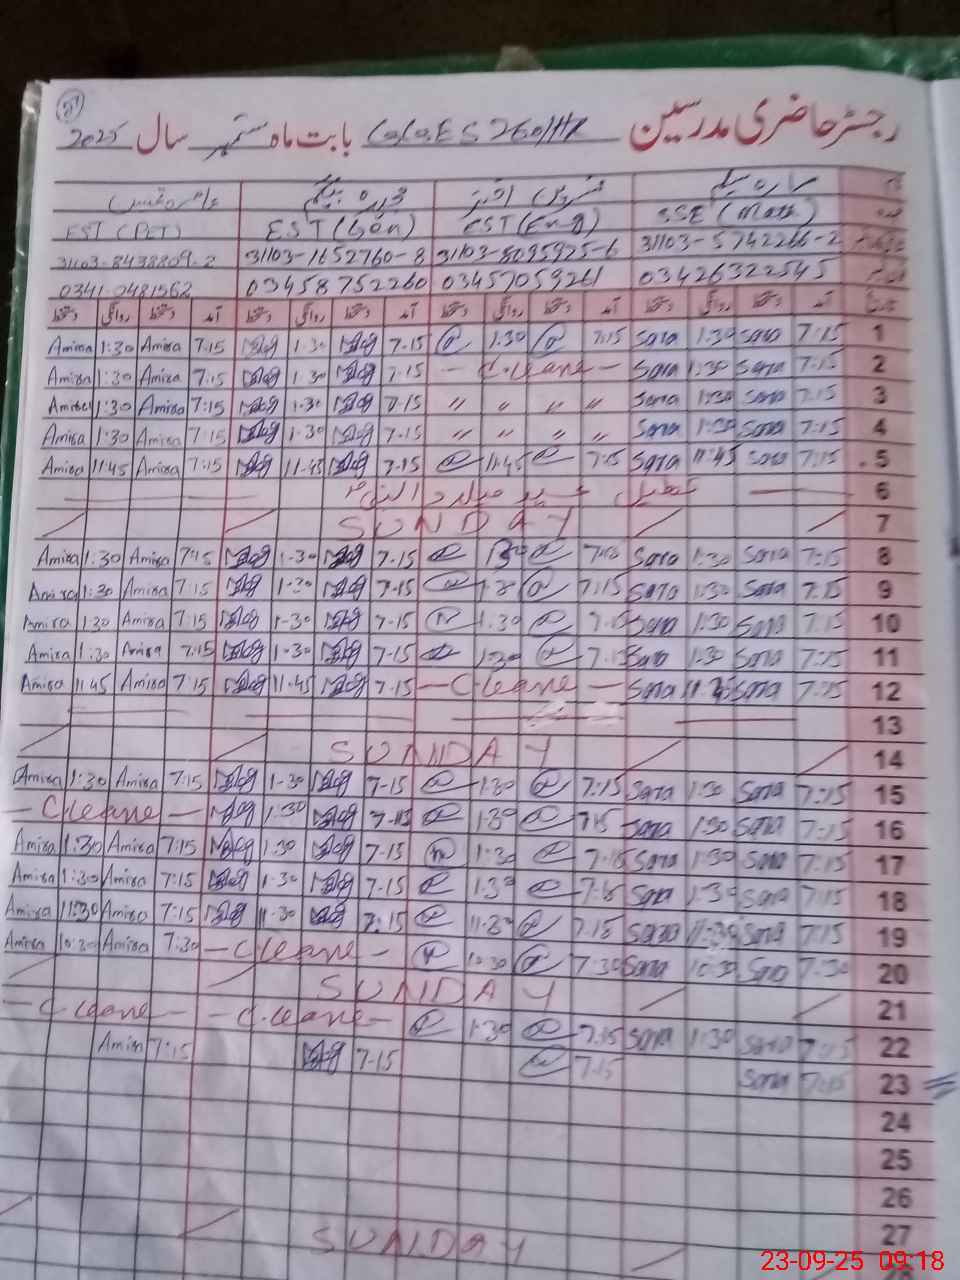 51
رجسٹر حاضری مدرسین G.G.E.S 260/HR بابت ماہ ستمبر سال 2025
نام
SSE (Math) EST (Eng) EST (Gen) EST (PET)
31103-5742266-2 31103-8095925-6 31103-1652760-8 31103-8438809-2
03426322545 03457059261 03458752260 0341-0481562
آمد دستخط روانگی دستخط آمد دستخط روانگی دستخط آمد دستخط روانگی دستخط آمد دستخط روانگی دستخط
Amisa 1:30 Amisa 7:15 1-30 7-15 1:30 7:15 Sara 1:30 Sara 7:15 1
Amisa 1:30 Amisa 7:15 1-30 7-15 - C.leave - Sara 1:30 Sara 7:15 2
Amisa 1:30 Amisa 7:15 1-30 7-15 〃 〃 〃 〃 Sara 1:30 Sara 7:15 3
Amisa 1:30 Amisa 7:15 1-30 7-15 〃 〃 〃 〃 Sara 1:30 Sara 7:15 4
Amisa 11:45 Amisa 7:15 11-45 7-15 11:45 7:15 Sara 11:45 Sara 7:15 5
تعطیل عید میلاد النبی 6
SUNDAY 7
Amisa 1:30 Amisa 7:15 1-30 7-15 1:30 7:15 Sara 1:30 Sara 7:15 8
Amisa 1:30 Amisa 7:15 1-30 7-15 1:30 7:15 Sara 1:30 Sara 7:15 9
Amisa 1:30 Amisa 7:15 1-30 7-15 1:30 7:15 Sara 1:30 Sara 7:15 10
Amisa 1:30 Amisa 7:15 1-30 7-15 1:30 7:15 Sara 1:30 Sara 7:15 11
Amisa 11:45 Amisa 7:15 11-45 7-15 - C.leave - Sara 11:45 Sara 7:15 12
13
SUNDAY 14
Amisa 1:30 Amisa 7:15 1-30 7-15 1:30 7:15 Sara 1:30 Sara 7:15 15
- C.leave - 1:30 7-15 1:30 7:15 Sara 1:30 Sara 7:15 16
Amisa 1:30 Amisa 7:15 1:30 7-15 1:30 7:15 Sara 1:30 Sara 7:15 17
Amisa 1:30 Amisa 7:15 1-30 7-15 1:30 7:15 Sara 1:30 Sara 7:15 18
Amisa 11:30 Amisa 7:15 11-30 7:15 11:30 7:15 Sara 11:30 Sara 7:15 19
Amisa 10:30 Amisa 7:30 - C.leave - 10:30 7:30 Sara 10:30 Sara 7:30 20
SUNDAY 21
- C.leave - - C.leave - 1:30 7:15 Sara 1:30 Sara 7:15 22
Amisa 7:15 7-15 7:15 Sara 7:15 23
24
25
26
27
SUNDAY
23-09-25 09:18